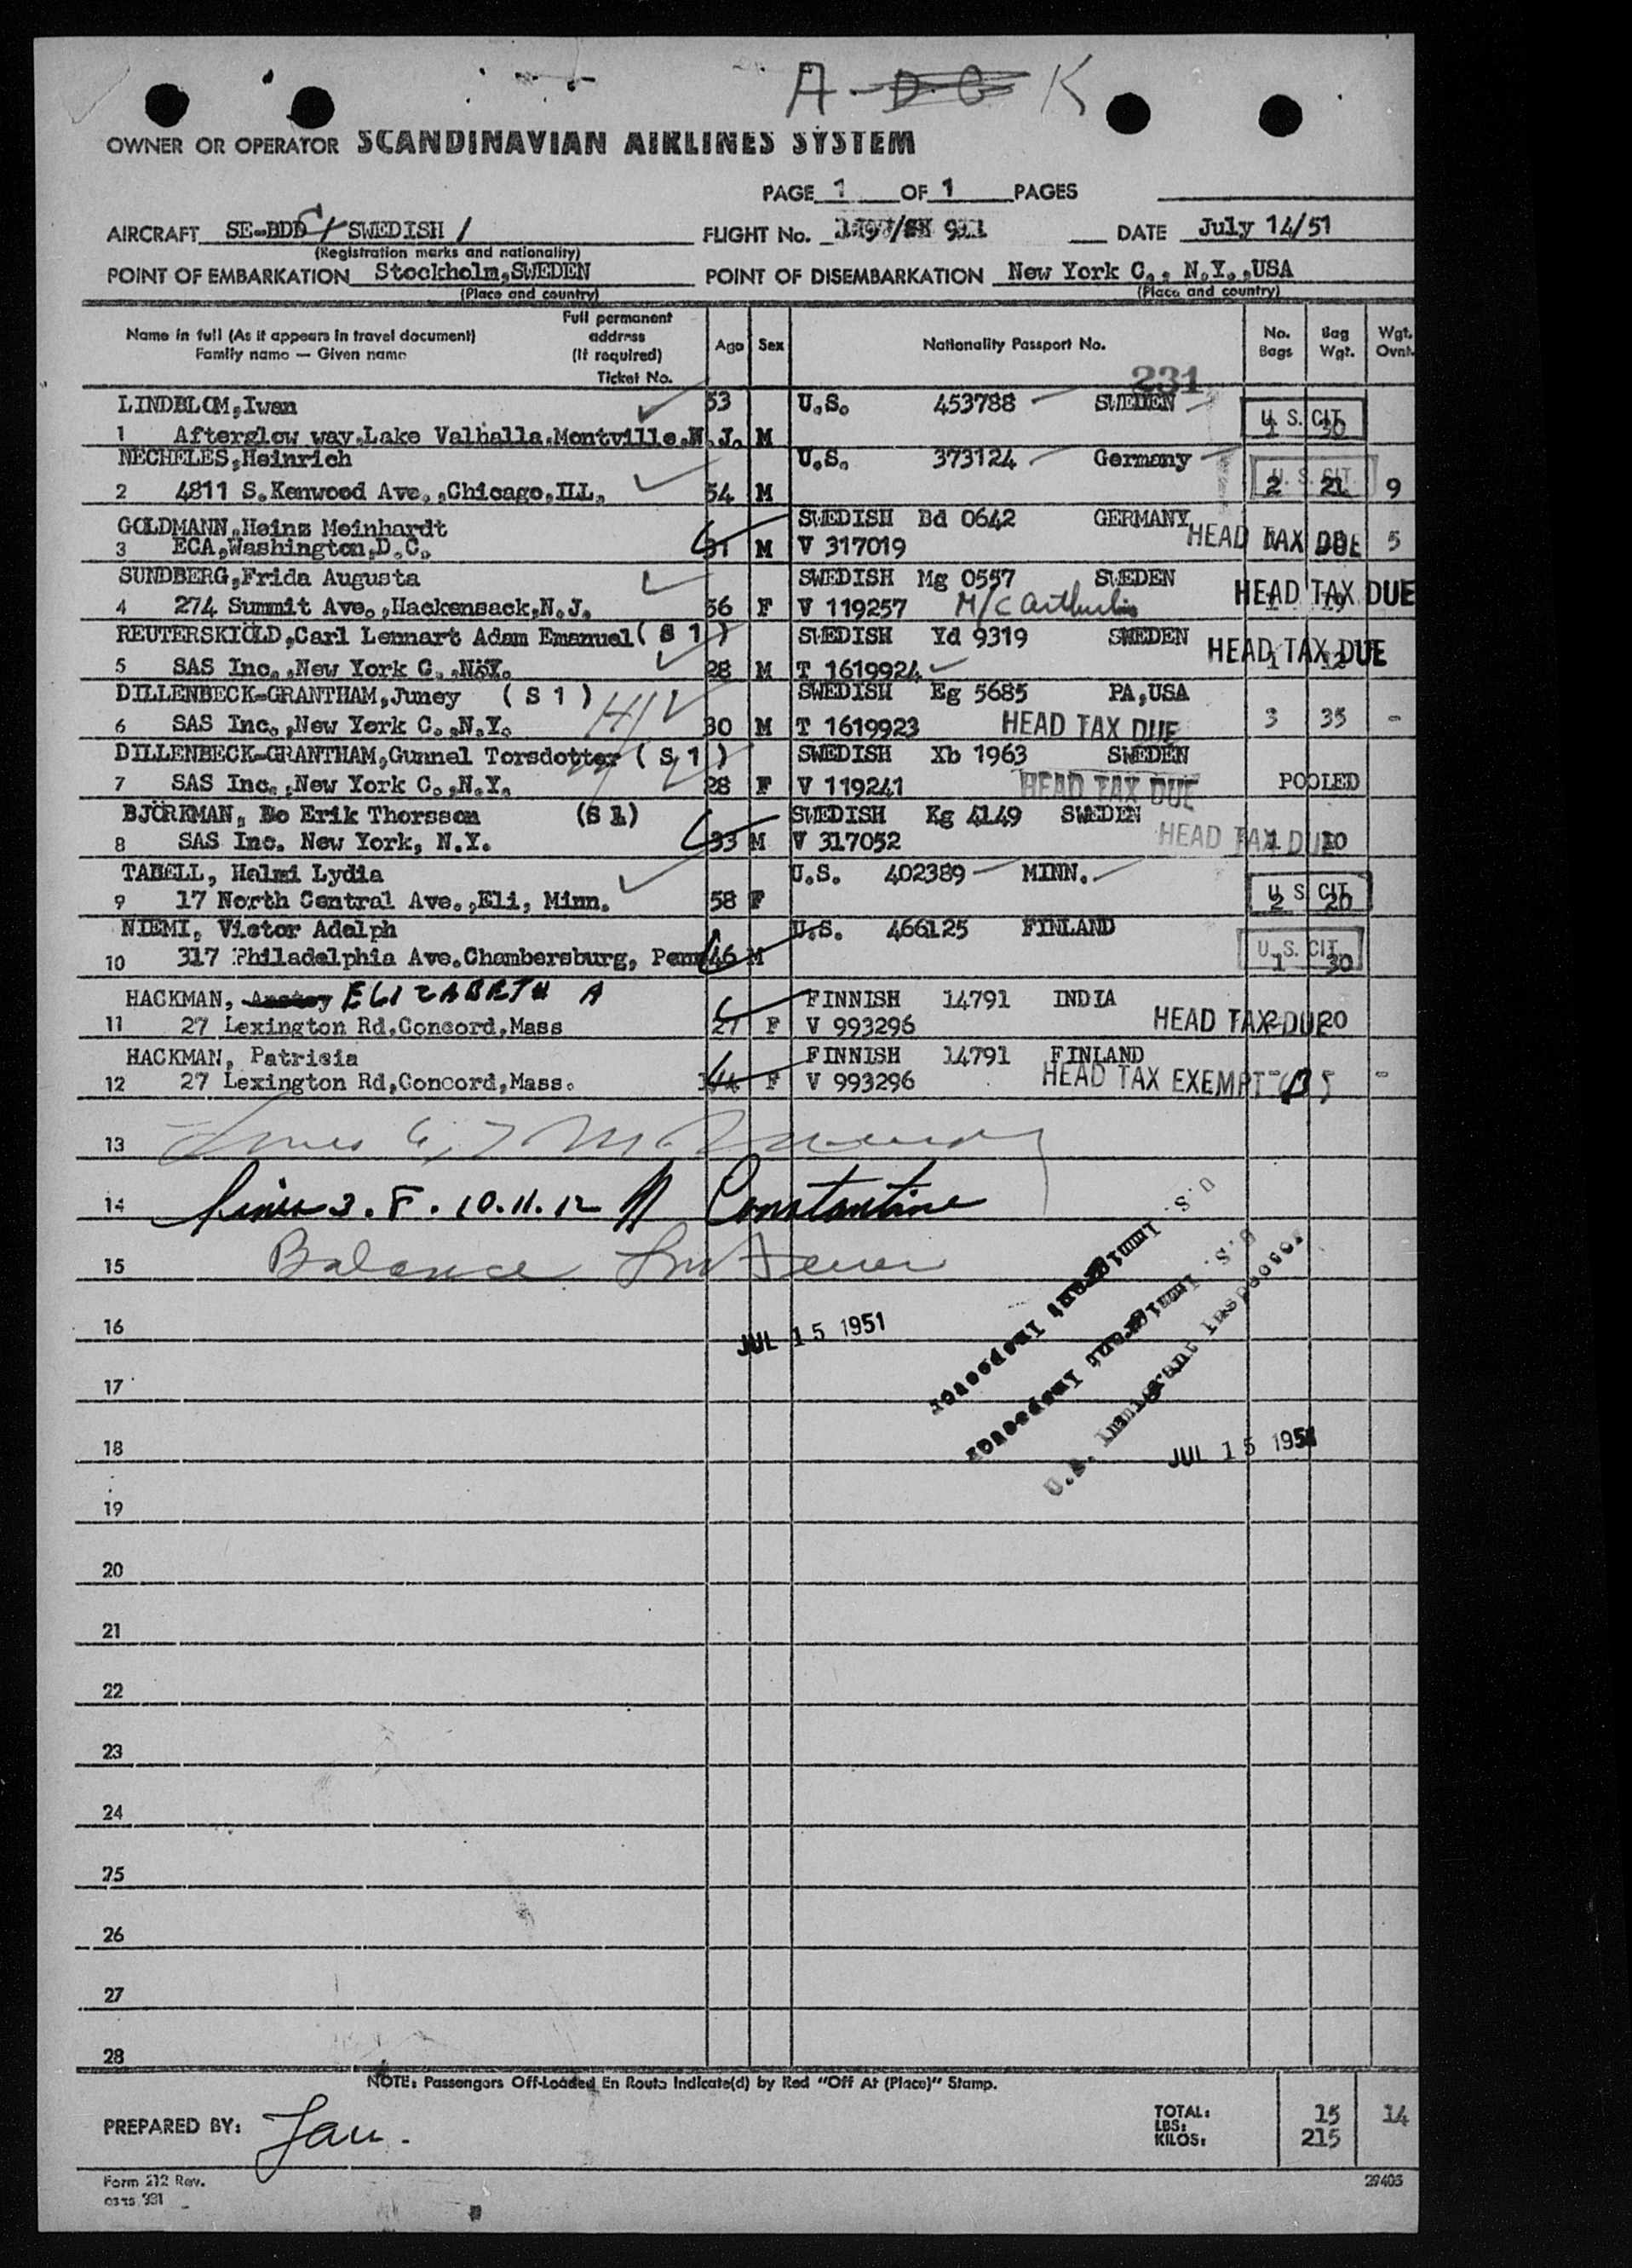 A - D G K
OWNER OR OPERATOR SCANDINAVIAN AIRLINES SYSTEM
PAGE 1 OF 1 PAGES
AIRCRAFT SE-BDD / SWEDISH / FLIGHT No. /SK 911 DATE July 14/51
(Registration marks and nationality)
POINT OF EMBARKATION Stockholm,SWEDEN POINT OF DISEMBARKATION New York C., N.Y.,USA
(Place and country) (Place and country)
Name in full (As it appears in travel document) Family name — Given name Full permanent address (If required) Ticket No. Age Sex Nationality Passport No. No. Bags Bag Wgt. Wgt. Ovnt.
231
LINDBLOM,Iwan 53 U.S. 453788 SWEDEN U.S. CIT
1 Afterglow way,Lake Valhalla,Montville,N.J. M 1 30
NECHELES,Heinrich U.S. 373124 Germany U.S. CIT
2 4811 S.Kenwood Ave.,Chicago,ILL, 54 M 2 21 9
GOLDMANN,Heinz Meinhardt SWEDISH Bd 0642 GERMANY HEAD TAX DUE
3 ECA,Washington,D.C. 31 M V 317019 5
SUNDBERG,Frida Augusta SWEDISH Mg 0557 SWEDEN HEAD TAX DUE
4 274 Summit Ave.,Hackensack,N.J. 56 F V 119257
REUTERSKIÖLD,Carl Lennart Adam Emanuel( S 1 ) SWEDISH Yd 9319 SWEDEN HEAD TAX DUE
5 SAS Inc.,New York C.,N.Y. 28 M T 1619924 1 12
DILLENBECK-GRANTHAM,Juney ( S 1 ) SWEDISH Eg 5685 PA,USA
6 SAS Inc.,New York C.,N.Y. 30 M T 1619923 HEAD TAX DUE 3 35 -
DILLENBECK-GRANTHAM,Gunnel Torsdotter ( S 1 ) SWEDISH Xb 1963 SWEDEN
7 SAS Inc.,New York C.,N.Y. 28 F V 119241 HEAD TAX DUE POOLED
BJÖRKMAN, Bo Erik Thorsson (S 1) SWEDISH Kg 4149 SWEDEN HEAD TAX DUE
8 SAS Inc. New York, N.Y. 33 M V 317052 1 10
TABELL, Helmi Lydia U.S. 402389 MINN. U S CIT
9 17 North Central Ave.,Eli, Minn. 58 F 2 20
NIEMI, Victor Adolph U.S. 466125 FINLAND U.S. CIT
10 317 Philadelphia Ave.Chambersburg, Penn 46 M 1 30
HACKMAN, ELIZABETH A FINNISH 14791 INDIA HEAD TAX DUE
11 27 Lexington Rd,Concord,Mass 27 F V 993296 2 20
HACKMAN, Patrisia FINNISH 14791 FINLAND
12 27 Lexington Rd,Concord,Mass. F V 993296 HEAD TAX EXEMPT -
13
14 Lines 3. 8. 10. 11. 12 Constantine
15 Balance
U.S. Immigrant Inspector
U.S. Immigrant Inspector
U.S. Immigrant Inspector
16 JUL 15 1951
17
18 JUL 15 1951
19
20
21
22
23
24
25
26
27
28
NOTE: Passengers Off-Loaded En Route Indicate(d) by Red "Off At (Place)" Stamp.
PREPARED BY: Jan. TOTAL: 15 14
LBS:
KILOS: 215
Form 212 Rev. 29403